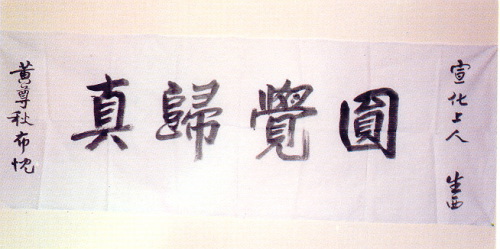 宣化上人 生西
圓覺歸真
黃尊秋 布忱